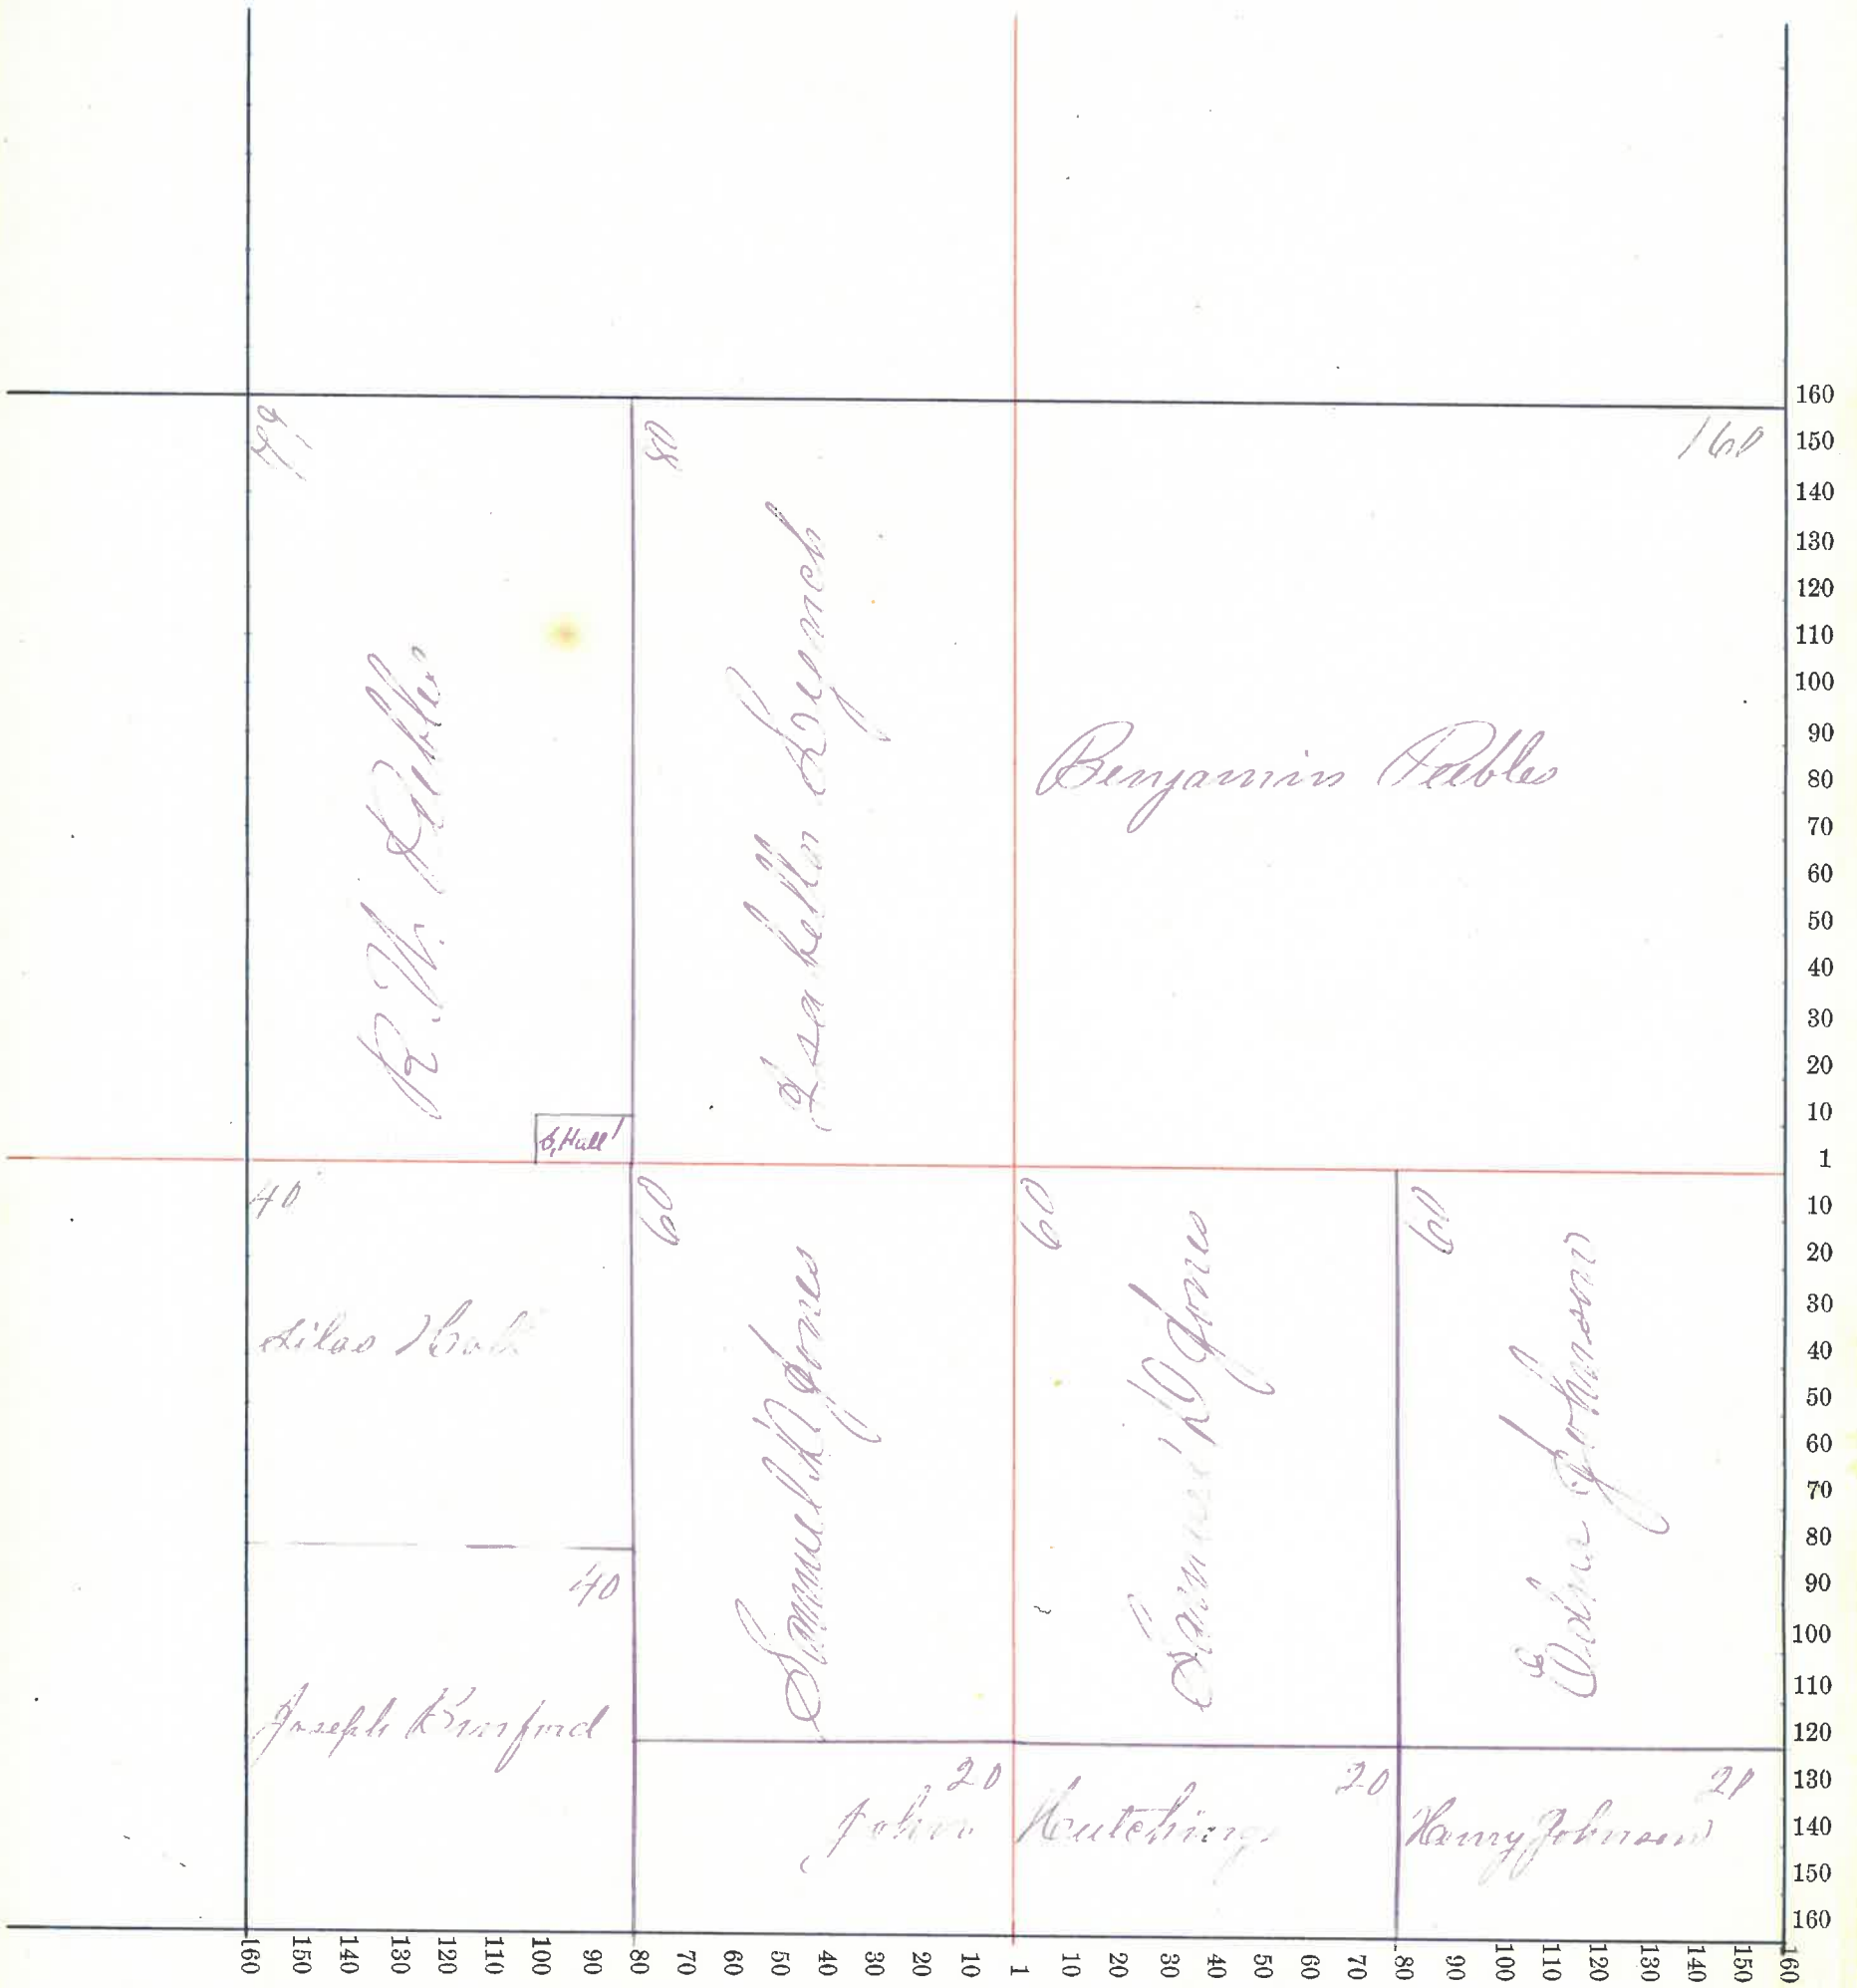 79
80
160
R. W. Peebles
Isabella Lynch
Benjamin Peebles
S, Hall 1
40
60
60
60
Silas Hall
Samuel N Jones
D Jones
Edna Johnson
40
Joseph Binford
20
20
20
John Hutchings
Henry Johnson
160
150
140
130
120
110
100
90
80
70
60
50
40
30
20
10
1
10
20
30
40
50
60
70
80
90
100
110
120
130
140
150
160
160 150 140 130 120 110 100 90 80 70 60 50 40 30 20 10 1 10 20 30 40 50 60 70 80 90 100 110 120 130 140 150 160